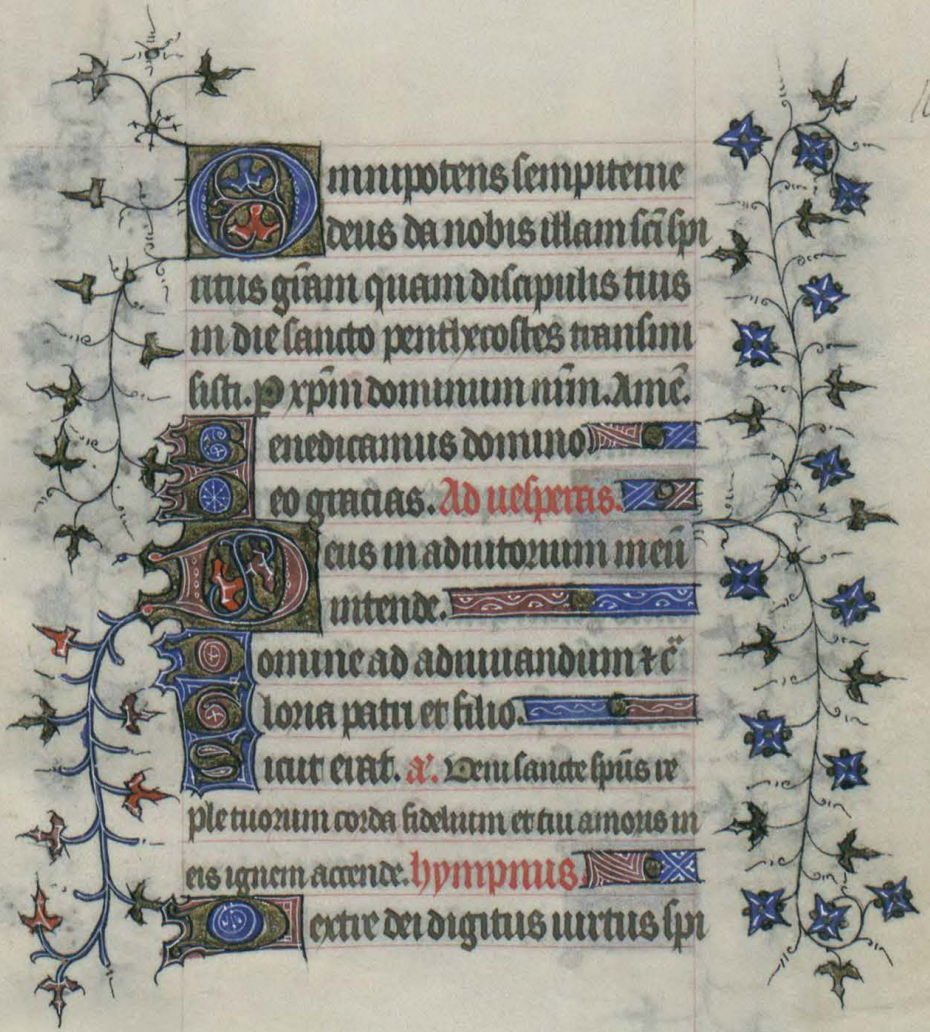 Omnipotens sempiterne
deus da nobis illam scī spi
ritus grām quam discipulis tuis
in die sancto penthecostes transmi
sisti. P xp̄m dominum nr̄m. Amē.
Benedicamus domino
Deo gracias. Ad uesperas.
Deus in adiutorium meū
intende.
Domine ad adiuuandum ⁊ c̄
Gloria patri et filio.
Sicut erat. a'. Veni sancte spūs re
ple tuorum corda fidelium et tui amoris in
eis ignem accende. hympnus.
Dextre dei digitus uirtus spi